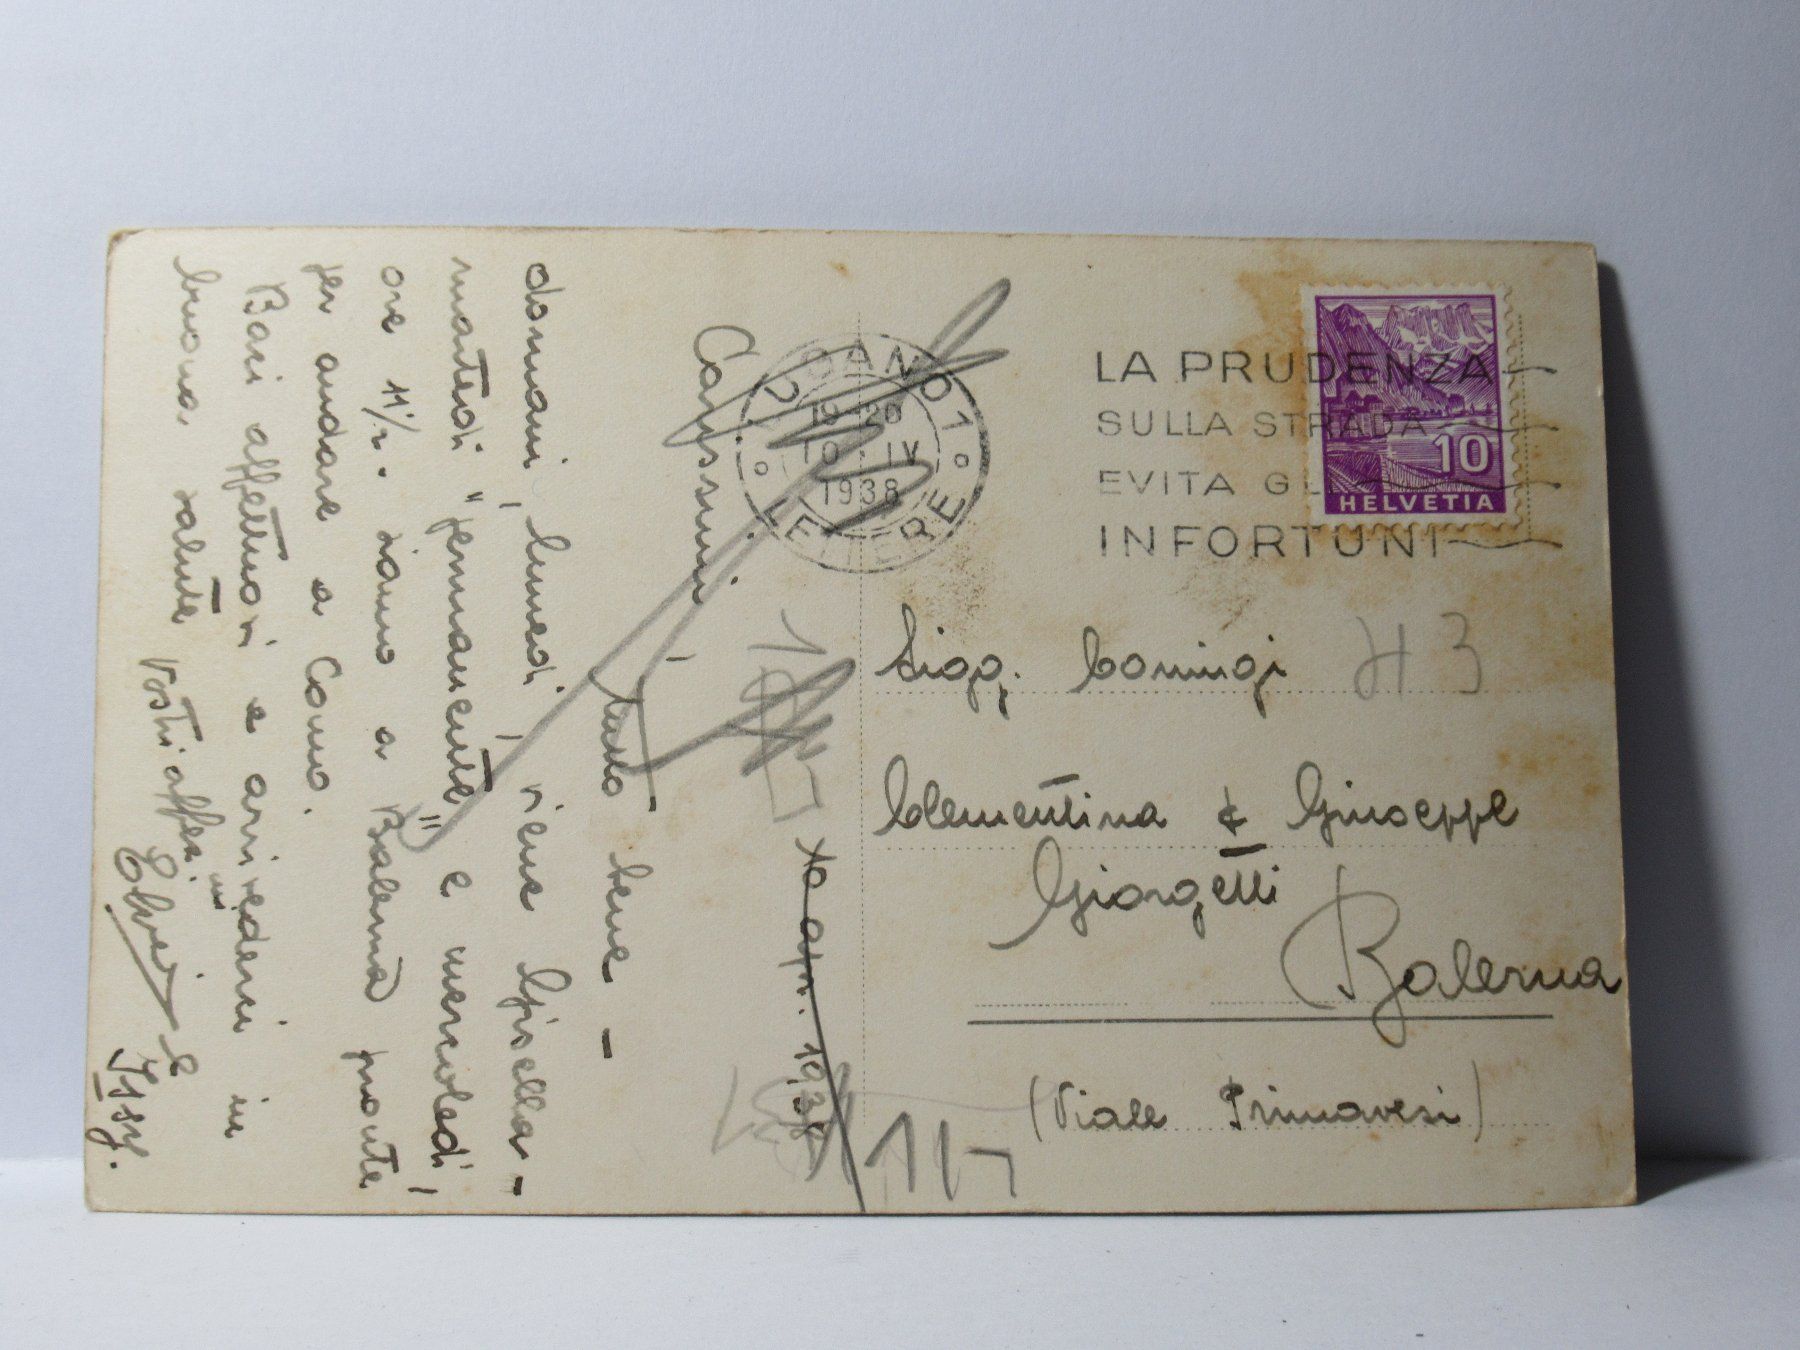 10 apr. 1938
Carissimi,
tutto bene -
domani, lunedì, viene Gisella -
martedì "permanente" e mercoledì,
ore 11 1/2. siamo a Balerna pronte
per andare a Como.
Baci affettuosi e arrivederci in
buona salute Vostri affez.mi
Elvezio e
Issy.
LUGANO 1
19-20
10.IV
1938
LETTERE
LA PRUDENZA
SULLA STRADA
EVITA GLI
INFORTUNI
10
HELVETIA
Sigg. Coniugi
H 3
Clementina & Giuseppe
Giorgetti
Balerna
(Viale Primavesi)